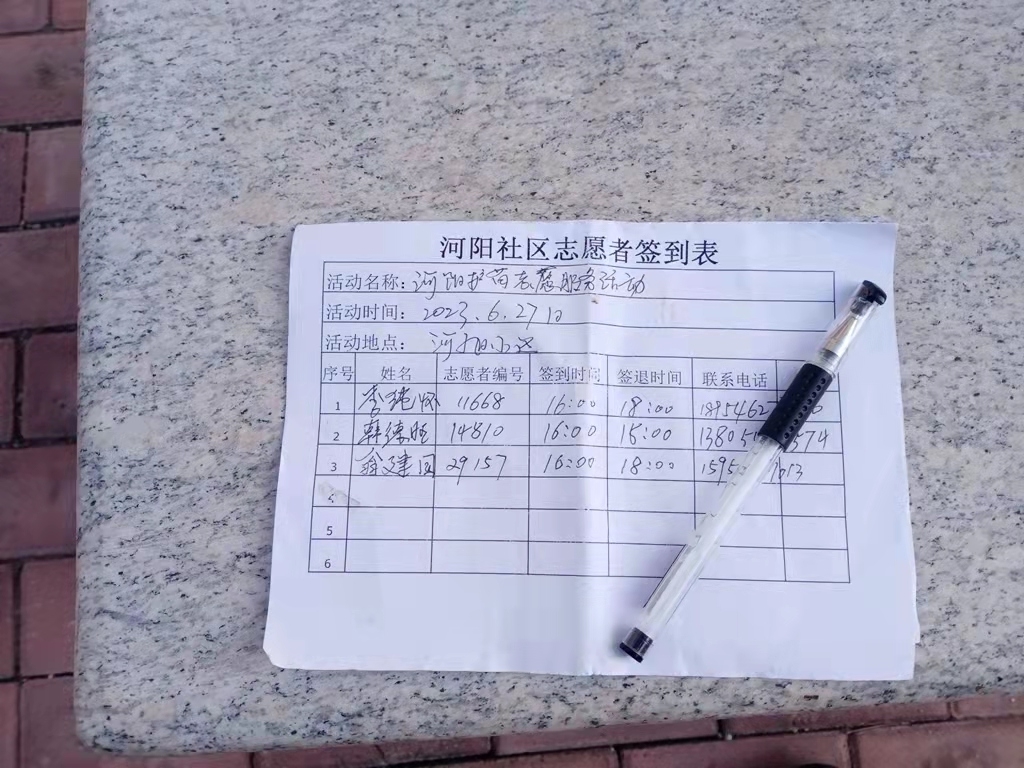 河阳社区志愿者签到表
活动名称：河阳护苗志愿服务活动
活动时间：2023.6.27日
活动地点：河阳小区
序号 姓名 志愿者编号 签到时间 签退时间 联系电话
1 李 11668 16:00 18:00
2 韩德胜 14810 16:00 18:00
3 翁建国 29157 16:00 18:00
4
5
6